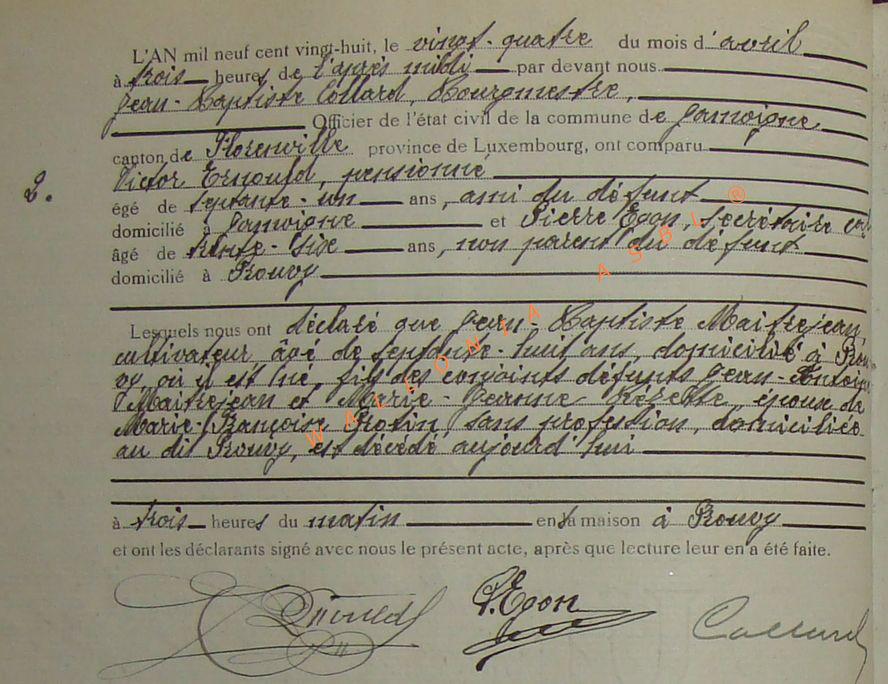 L'AN mil neuf cent vingt-huit, le vingt-quatre du mois d'avril
à trois heures de l'après midi par devant nous
Jean-Baptiste Collard, Bourgmestre,
Officier de l'état civil de la commune de Jamoigne
canton de Florenville province de Luxembourg, ont comparu
Victor Ernould, pensionné
2.
égé de septante-un ans, ami du défunt
domicilié à Jamoigne et Pierre Egon, secrétaire com
âgé de trente-six ans, non parent du défunt
domicilié à Prouvy
Lesquels nous ont déclaré que Jean-Baptiste Maitrejean,
cultivateur âgé de septante-huit ans, domicilié à Prou
vy, où il est né, fils des conjoints défunts Jean-Antoine
Maitrejean et Marie-Jeanne époux de
Marie-Françoise sans profession, domiciliée
au dit Prouvy, est décédé aujourd'hui
à trois heures du matin en sa maison à Prouvy
et ont les déclarants signé avec nous le présent acte, après que lecture leur en a été faite.
Ernould P. Egon Collard
WALLONIA ASBL ®